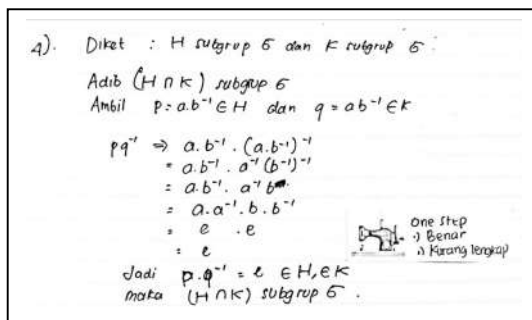 4). Diket : H subgrup G dan K subgrup G.
Adib (H ∩ K) subgrup G
Ambil p = a.b⁻¹ ∈ H dan q = ab⁻¹ ∈ K
pq⁻¹ ⇒ a.b⁻¹ . (a.b⁻¹)⁻¹
= a.b⁻¹ . a⁻¹ (b⁻¹)⁻¹
= a.b⁻¹ . a⁻¹ b
= a.a⁻¹ . b . b⁻¹
= e . e
= e
Jadi p.q⁻¹ = e ∈ H, ∈ K
maka (H ∩ K) subgrup G.
One Step
.) Benar
.) Kurang lengkap